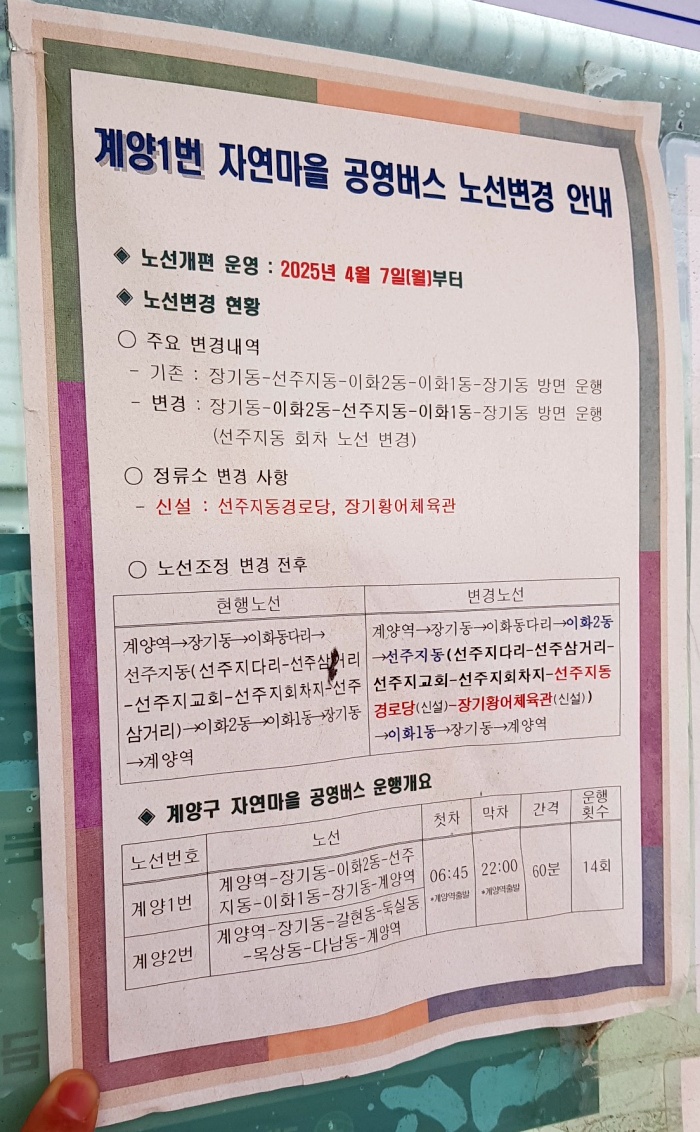 계양1번 자연마을 공영버스 노선변경 안내
◈ 노선개편 운영 : 2025년 4월 7일(월)부터
◈ 노선변경 현황
○ 주요 변경내역
- 기존 : 장기동-선주지동-이화2동-이화1동-장기동 방면 운행
- 변경 : 장기동-이화2동-선주지동-이화1동-장기동 방면 운행
(선주지동 회차 노선 변경)
○ 정류소 변경 사항
- 신설 : 선주지동경로당, 장기황어체육관
○ 노선조정 변경 전후
현행노선
계양역→장기동→이화동다리→
선주지동(선주지다리-선주삼거리
-선주지교회-선주지회차지-선주
삼거리)→이화2동→이화1동→장기동
→계양역
변경노선
계양역→장기동→이화동다리→이화2동
→선주지동(선주지다리-선주삼거리-
선주지교회-선주지회차지-선주지동
경로당(신설)-장기황어체육관(신설))
→이화1동→장기동→계양역
◈ 계양구 자연마을 공영버스 운행개요
노선번호 노선 첫차 막차 간격 운행
횟수
계양1번 계양역-장기동-이화2동-선주
지동-이화1동-장기동-계양역
06:45 22:00 60분 14회
*계양역출발 *계양역출발
계양2번 계양역-장기동-갈현동-둑실동
-목상동-다남동-계양역